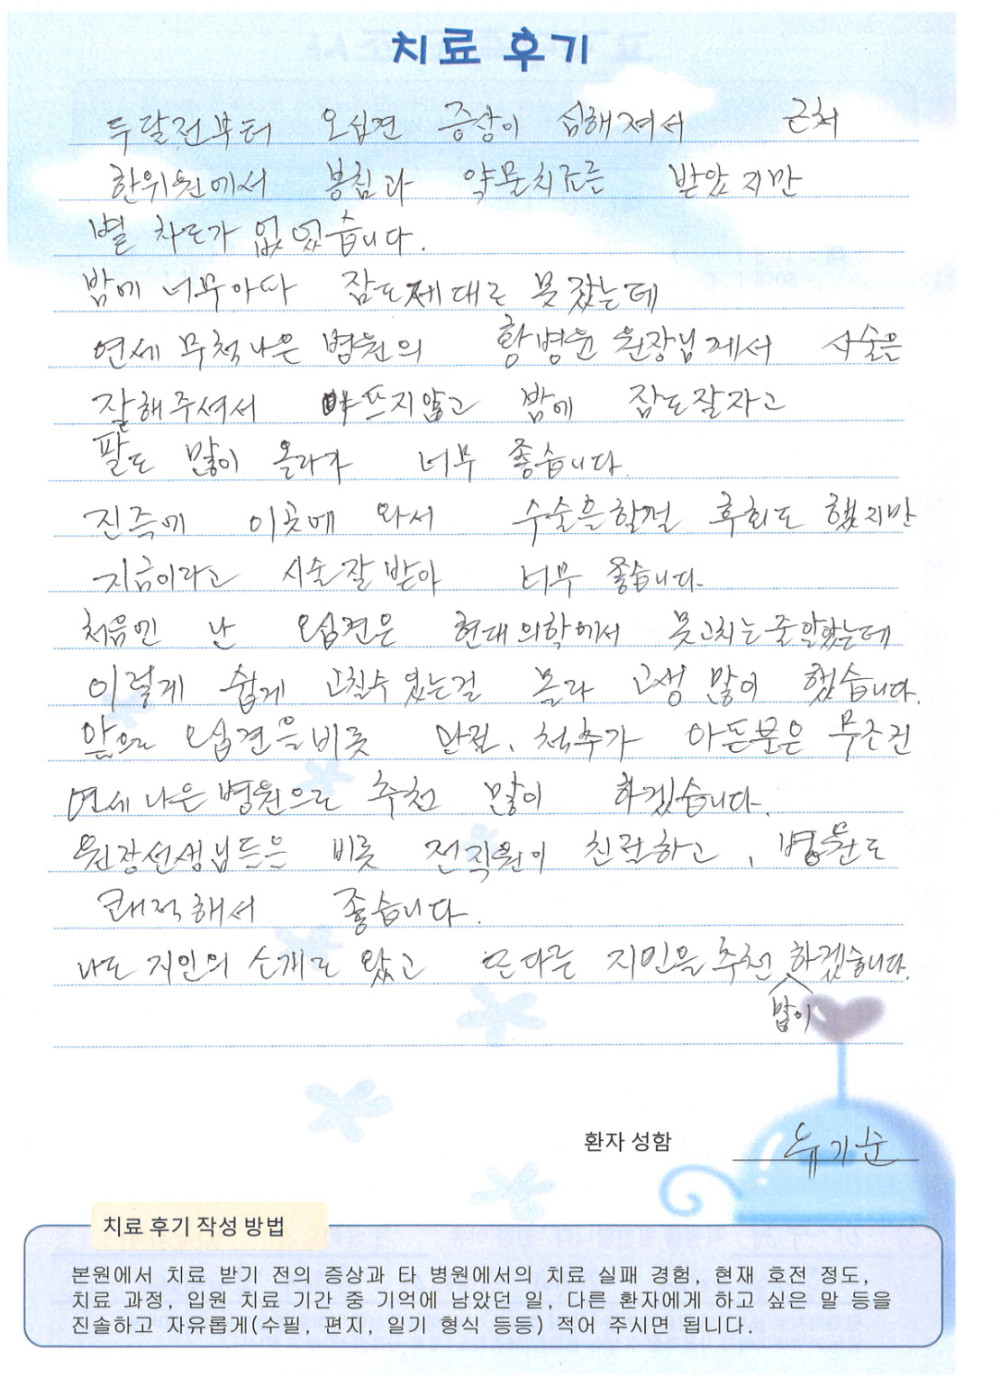 치료 후기
두달전부터 오십견 증상이 심해져서 근처
한위원에서 봉침과 약물치료를 받았지만
별 차도가 없었습니다.
밤에 너무아파 잠도제대로 못잤는데
연세 무척나은 병원의 황병윤 원장님께서 시술을
잘해주셔서 아쁘지않고 밤에 잠도잘자고
팔도 많이 올라가 너무 좋습니다.
진즉에 이곳에 와서 수술을할껄 후회도 했지만
지금이라고 시술잘받아 너무 좋습니다.
처음엔 난 오십견은 현대의학에서 못고치는줄알았는데
이렇게 쉽게 고칠수있는걸 몰라 고생 많이 했습니다.
앞으로 오십견을비롯 관절, 척추가 아픈분은 무조건
연세나은병원으로 추천 많이 하겠습니다.
원장선생님들은 비롯 전직원이 친절하고, 병원도
쾌적해서 좋습니다.
나도 지인의 소개로 왔고 또다른 지인을추천 하겠습니다.
많이
환자 성함 유기순
치료 후기 작성 방법
본원에서 치료 받기 전의 증상과 타 병원에서의 치료 실패 경험, 현재 호전 정도,
치료 과정, 입원 치료 기간 중 기억에 남았던 일, 다른 환자에게 하고 싶은 말 등을
진솔하고 자유롭게(수필, 편지, 일기 형식 등등) 적어 주시면 됩니다.